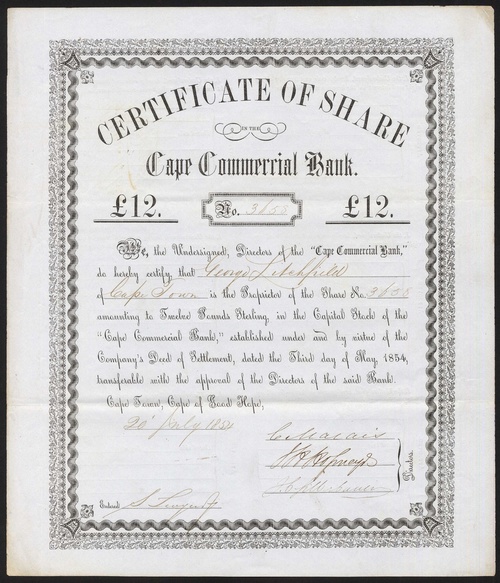 CERTIFICATE OF SHARE
IN THE
Cape Commercial Bank.
£12. No. 3858 £12.
We, the Undersigned, Directors of the "Cape Commercial Bank,"
do hereby certify, that George Litchfield
of Cape Town is the Proprietor of the Share No. 3858
amounting to Twelve Pounds Sterling, in the Capital Stock of the
"Cape Commercial Bank," established under and by virtue of the
Company's Deed of Settlement, dated the Third day of May, 1854,
transferable with the approval of the Directors of the said Bank.
Cape Town, Cape of Good Hope,
20 July 1854
C Marais
Directors.
Entered